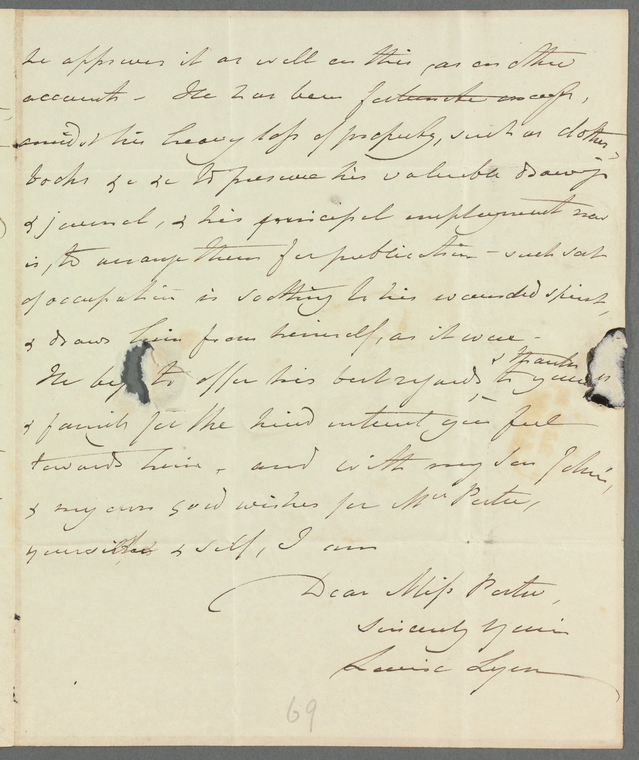 he approves it as well on this, as on other
accounts – He has been fortunate enough,
amidst his heavy loss of property, such as clothes,
books &c &c to preserve his valuable drawings
& journal, & his principal employment now
is, to arrange them for publication – such sort
of occupation is soothing to his wounded spirit,
& draws him from himself, as it were –
& thanks
He begs to offer his best regards to you
& family for the kind interest you feel
towards him, and with my son John's,
& my own good wishes for Mrs Porter,
& self, I am
Dear Miss Porter,
Sincerely yours
Louisa Lyon
69